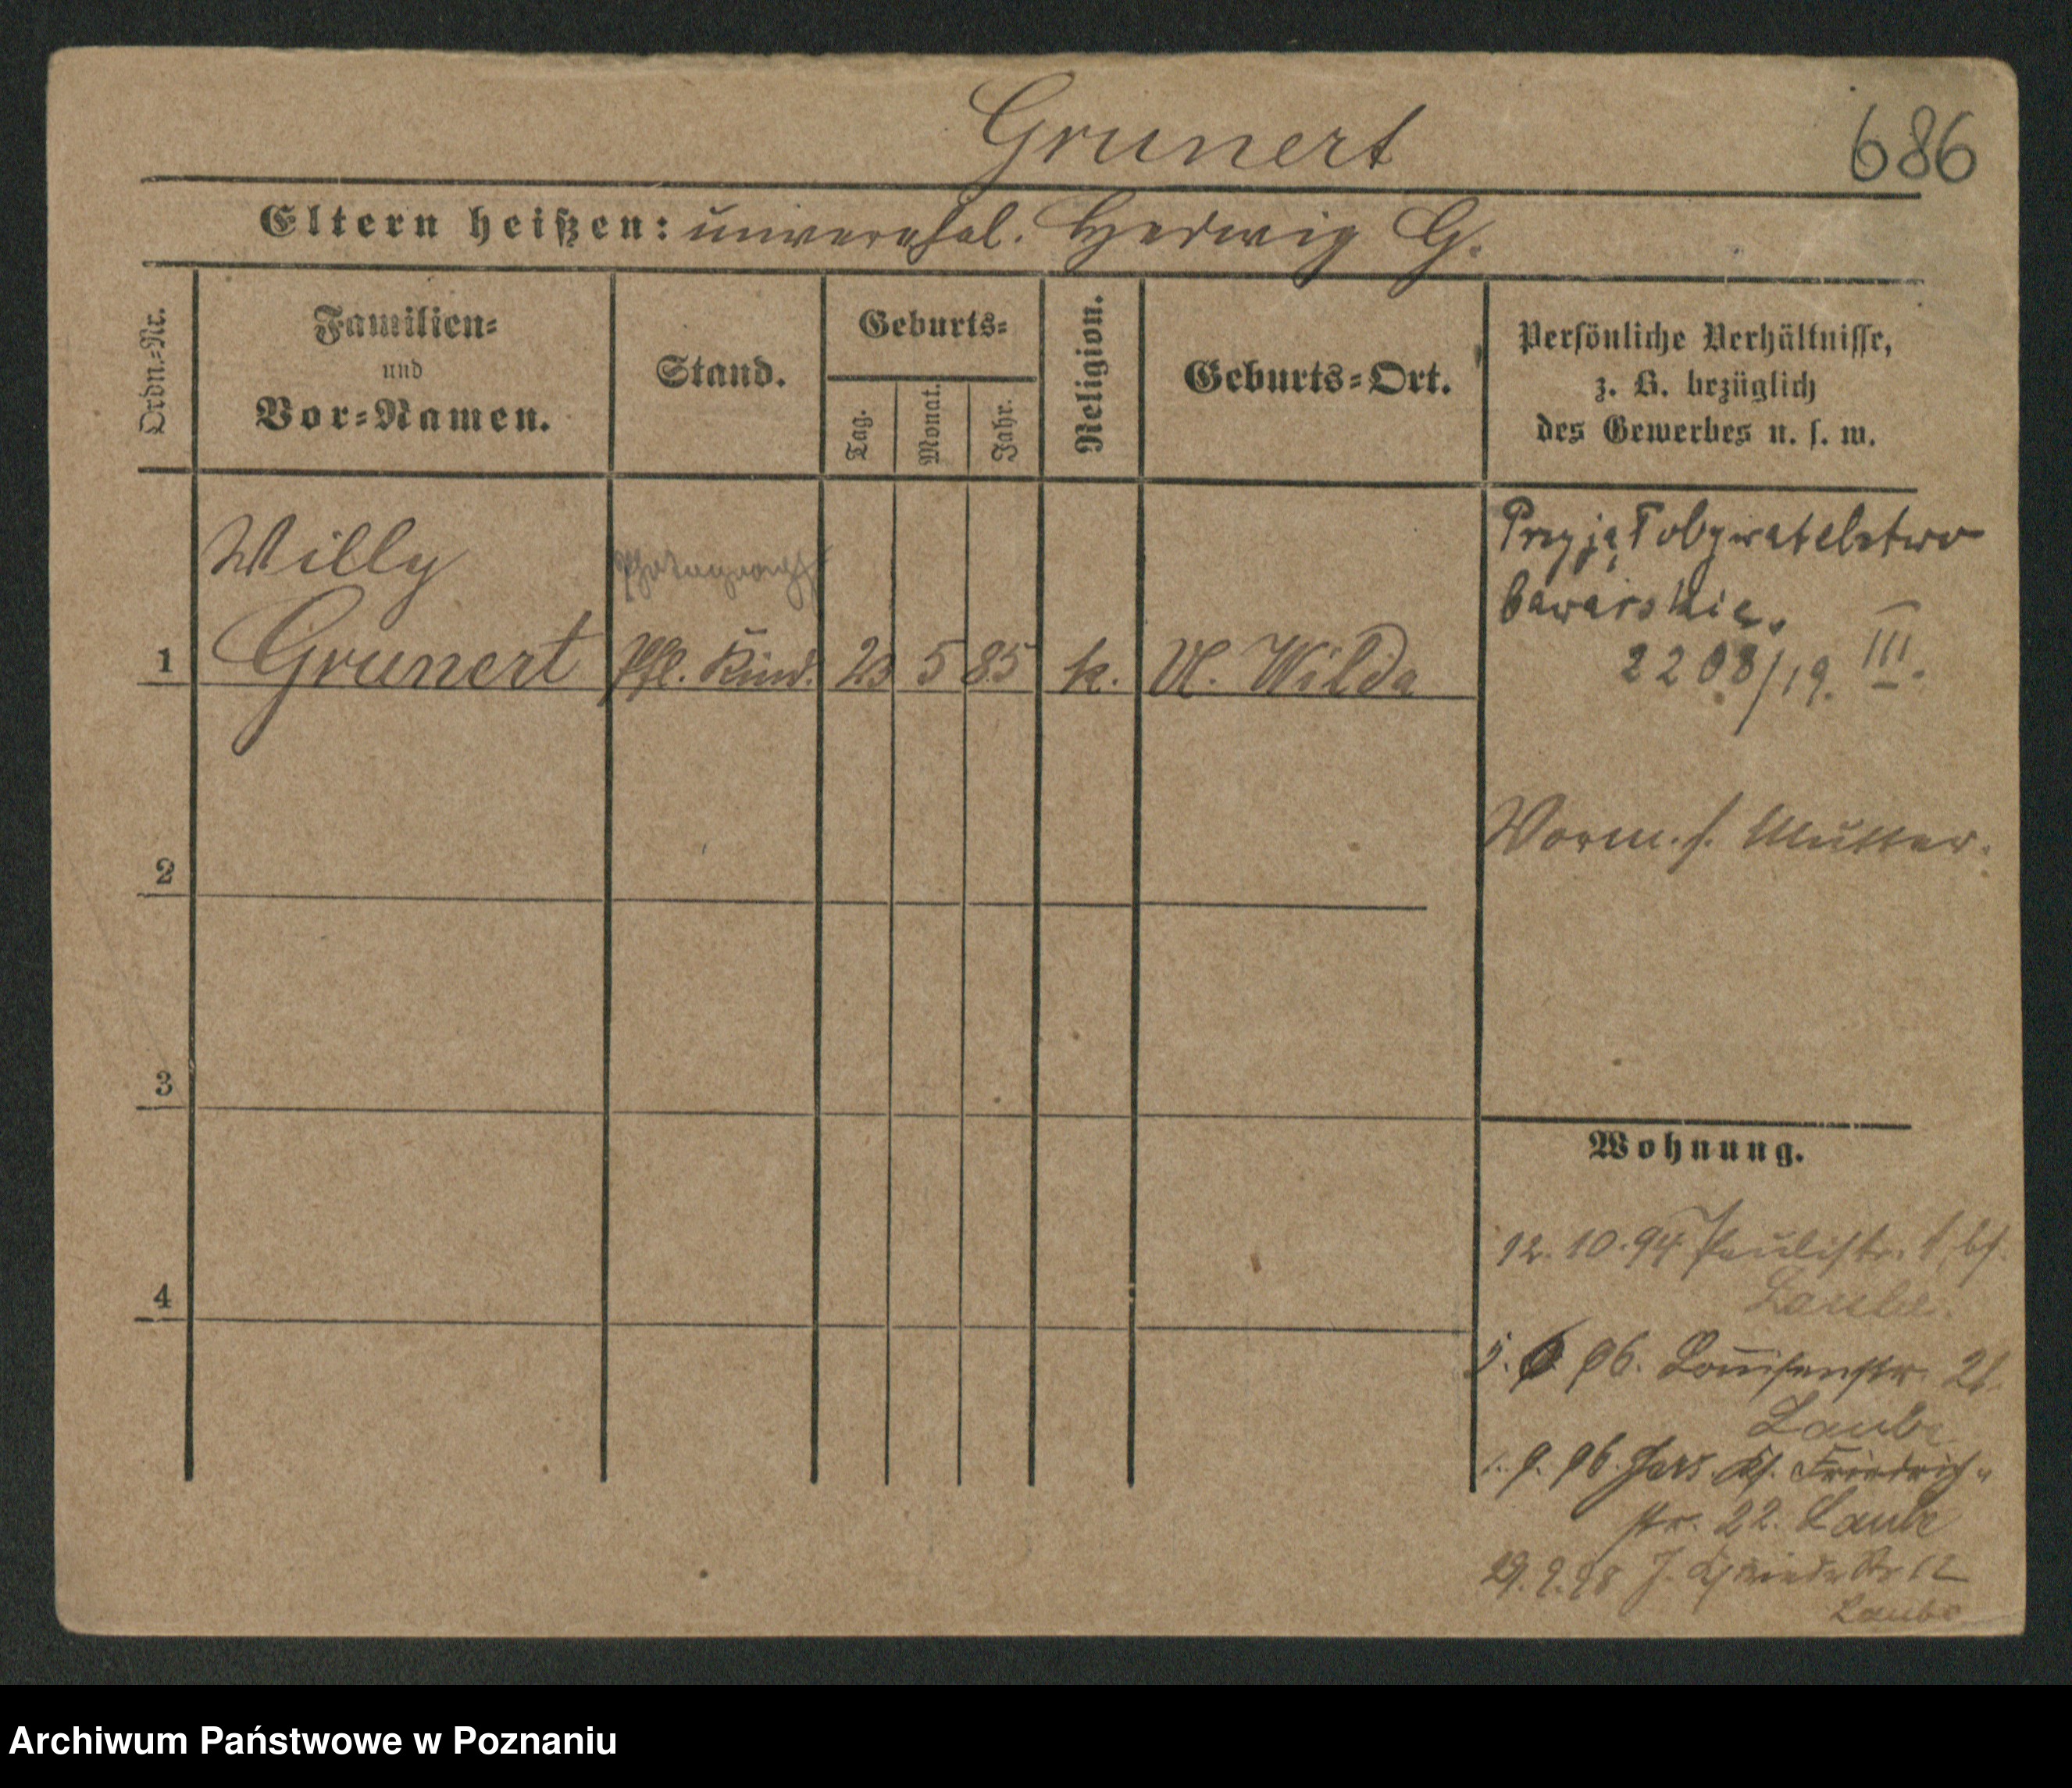 Grunert
686
Eltern heißen: unverehel. Hedwig G.
Ordn.=Nr.
Familien=
und
Vor=Namen.
Stand.
Geburts=
Tag.
Monat.
Jahr.
Religion.
Geburts=Ort.
Persönliche Verhältnisse,
z. B. bezüglich
des Gewerbes u. s. w.
Willy
Photograph
Przyjął obywatelstwo
bawarskie.
2208/19. III.
1 Grunert Pfl. Kind. 23 5 85 k. Wilda
Vorm. s. Mutter.
2
3
Wohnung.
12. 10. 94 Paulistr. 1 bf.
Laube.
4
5. 96. Louisenstr. 21
Laube
9. 96. Friedrich-
str. 22. Laube
29. 9. 98 12
Laube
Archiwum Państwowe w Poznaniu